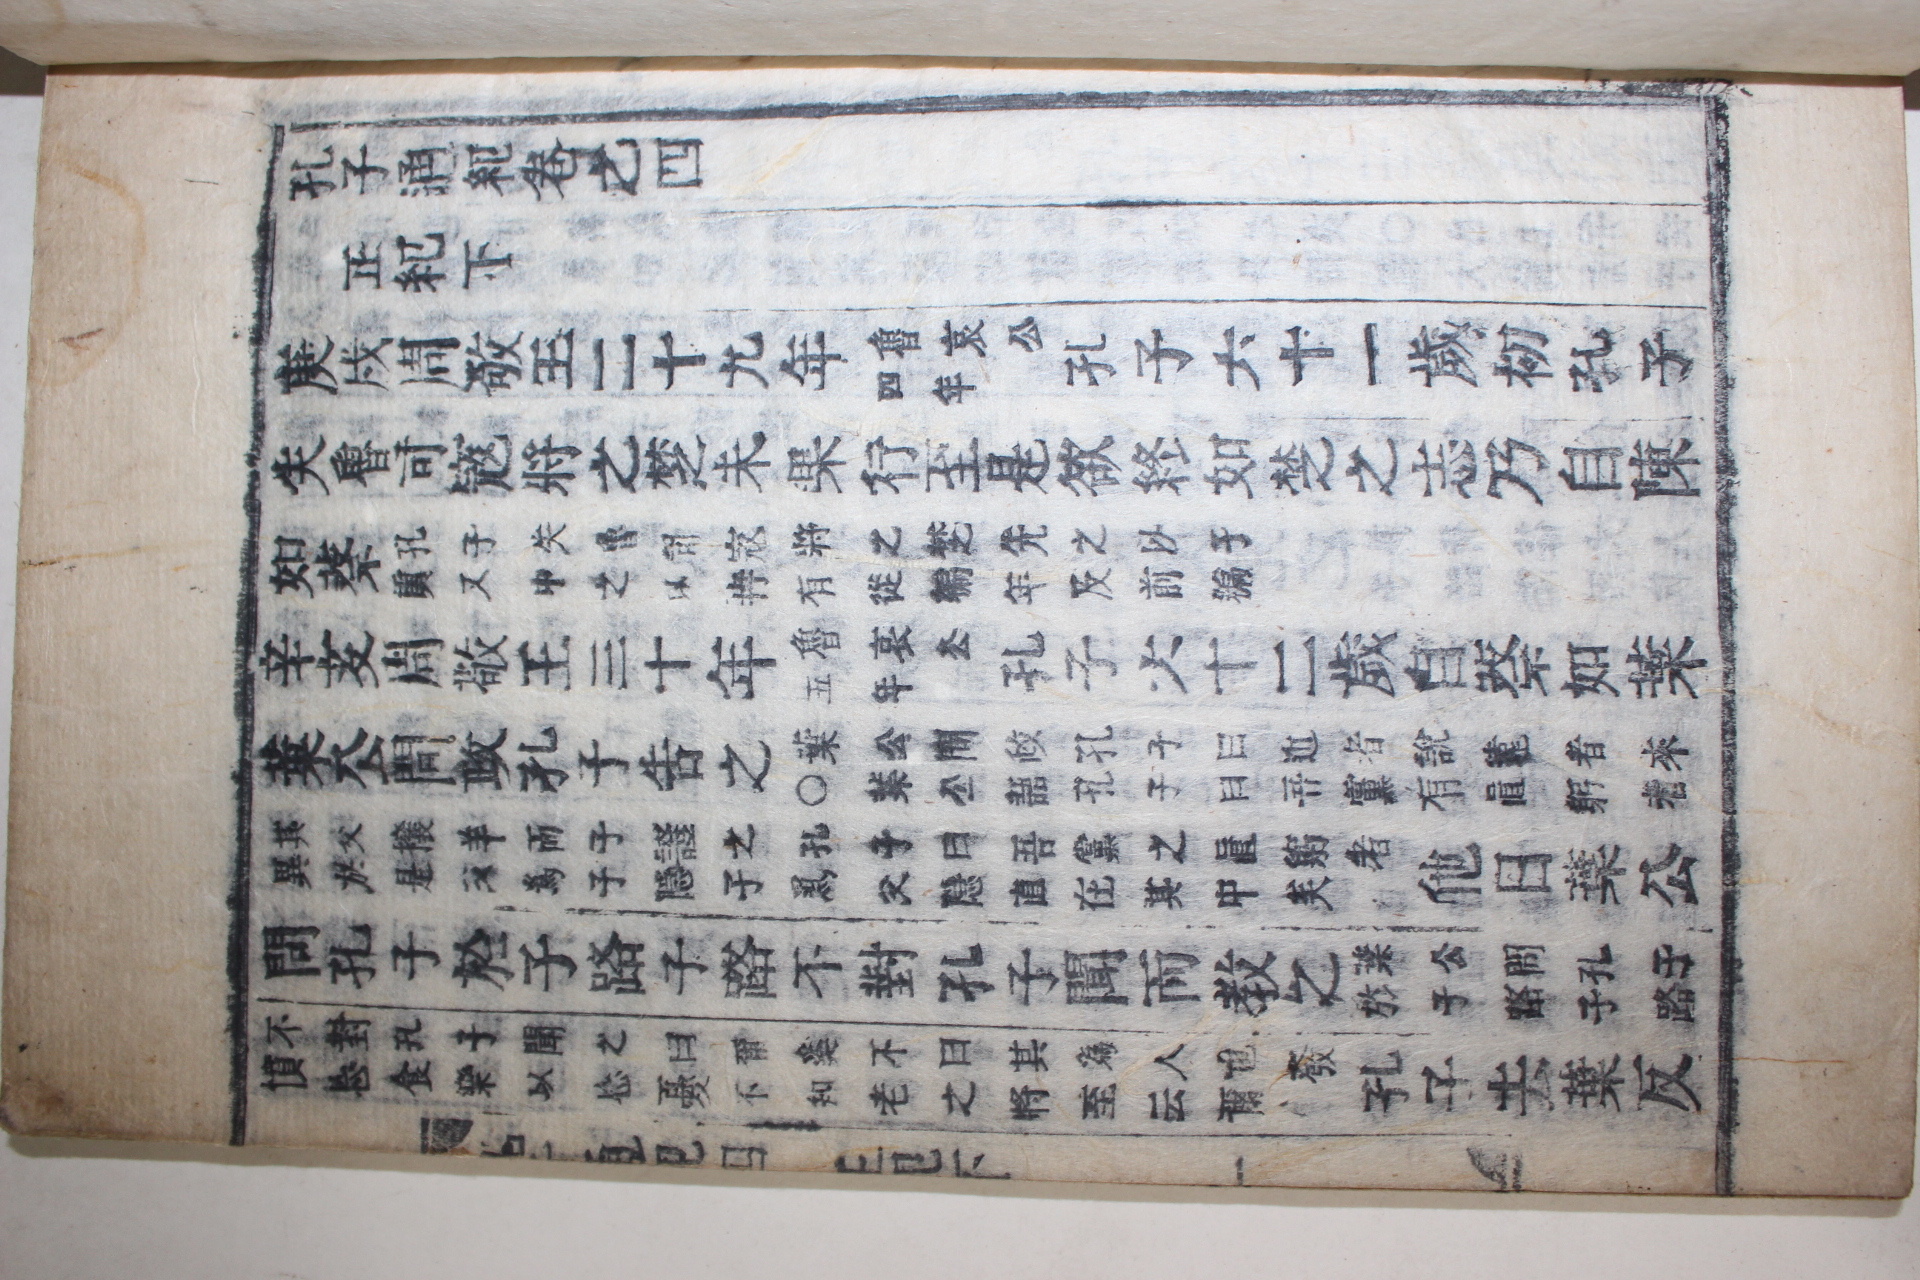 孔子通紀卷之四
正紀下
庚戌周敬王二十九年魯哀公四年孔子六十一歲初孔子
失魯司寇將之楚未果行至是欲終如楚之志乃自陳
如蔡孔子失魯司寇將之楚先之以子貢又申之以冉有從編年及前編
辛亥周敬王三十年魯哀公五年孔子六十二歲自蔡如葉
葉公問政孔子告之葉公問政孔子曰近者說遠者來○葉公語孔子曰吾黨有直躬者
其父攘羊而子證之孔子曰吾黨之直躬者異於是父爲子隱子爲父隱直在其中矣他日葉公
問孔子於子路子路不對孔子聞而教之葉公問孔子於子路子路
不對孔子聞之曰爾奚不曰其爲人也發憤忘食樂以忘憂不知老之將至云爾孔子去葉反
孔子通紀四 正紀下 一